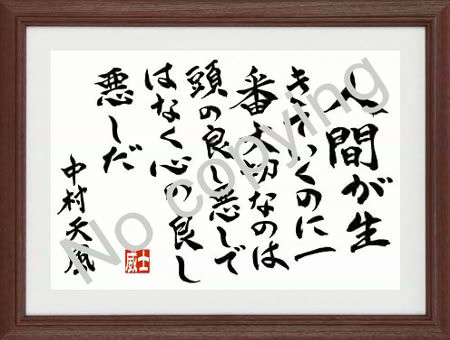 人間が生
きていくのに一
番大切なのは
頭の良し悪しで
はなく心の良し
悪しだ
中村天風
士威
No copying